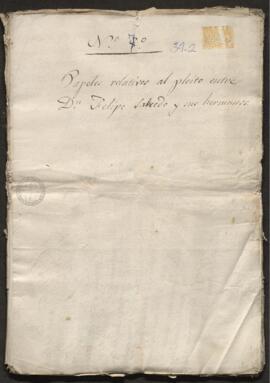 Nº 7º
342
Papeles relativos al pleito entre
Dn Felipe Salcedo y sus hermanos